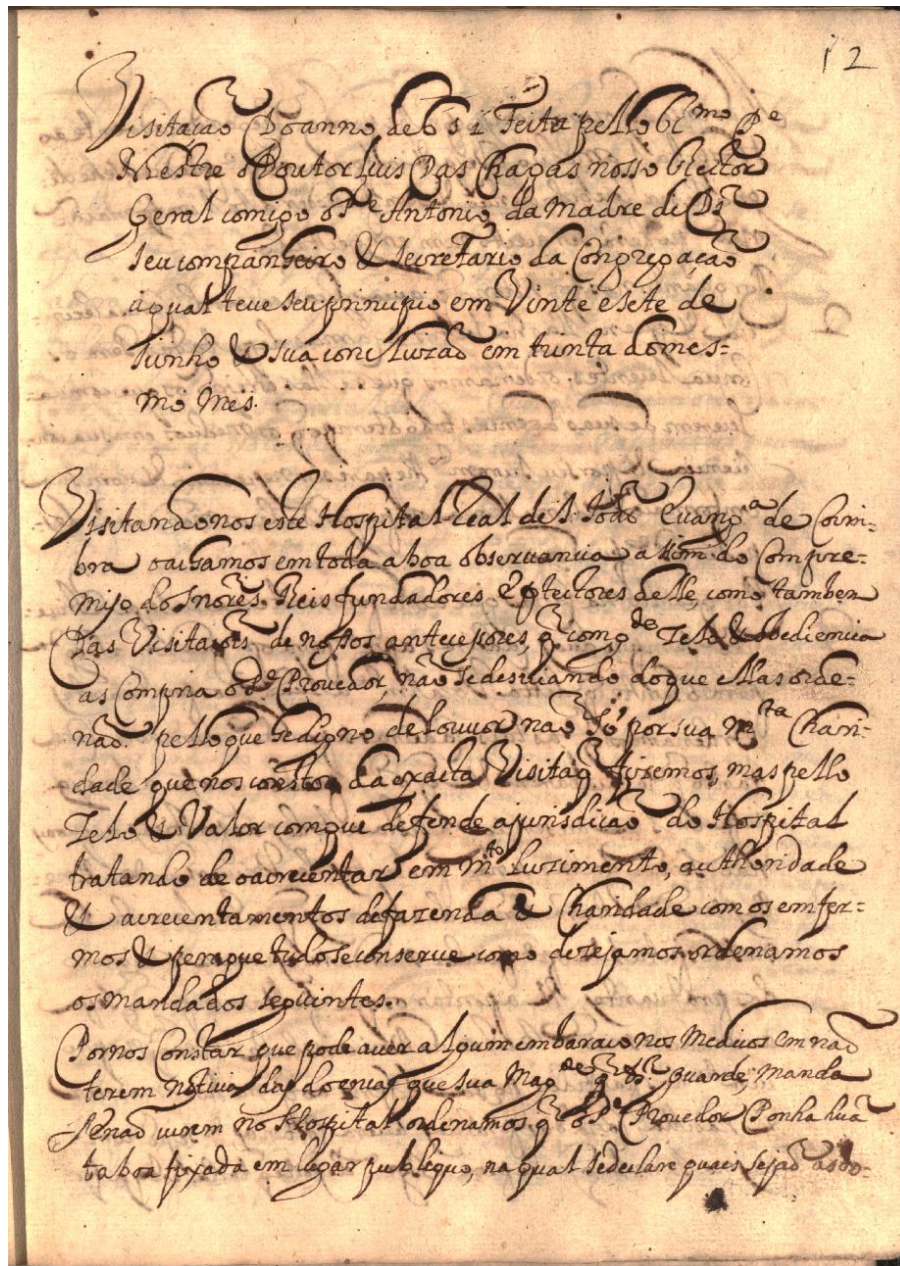 12
Visitação Do anno de 651 Feita pello R.mo P.e
Mestre o Doutor Luis Das Chagas nosso Rector
Geral comigo o P.e Antonio da Madre de Ds
seu companheiro & secretario da Congregação
a qual teve seu principio em Vinte e sete de
Iunho & sua concluzão em trinta do mes-
mo Mes.
Visitando nos este Hospital Real de S. Ioão Euang.a de Coim-
bra achamos em toda a boa observancia a do Compre-
miso dos Reis fundadores & ptectores delle, como tambem
Das Visitacois de nossos antecesores, q com g.de Zelo & obediencia
as Compria o P.e Proveador, não se desviando do que ellas orde-
não. pello que he digno de louvor não só por sua m.ta Chari-
dade que nos constou da exacta Visita q fizemos, mas pello
Zelo & Valor com que defende a jurisdicão do Hospital
tratando de o acrecentar em m.to luzimento, authoridade
& acrecentamentos de fazenda & Charidade com os emfer-
mos & pera que tudo se conserve como dezejamos ordenamos
os mandados seguintes.
Por nos Constar que pode aver algum embaraco nos Medicos em não
terem noticia das doenças que sua Mag.de q Ds. guarde, manda
se não curem no Hospital ordenamos q o P.e Provedor Ponha huã
taboa fixada em lugar publiquo, na qual se declare quais sejão as do-